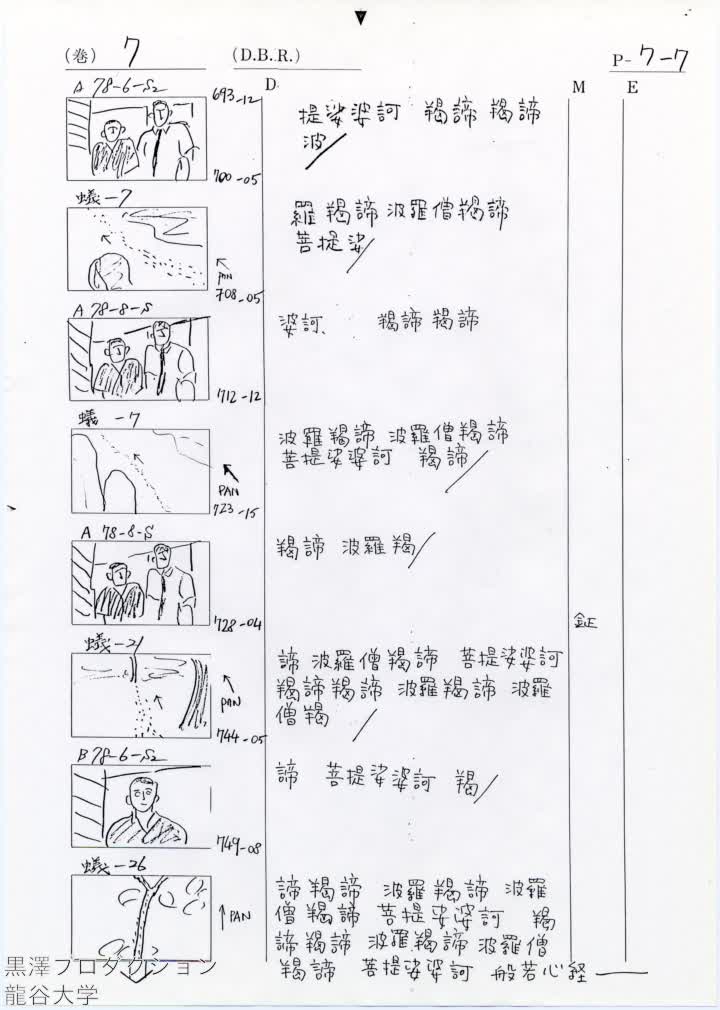 (巻) 7 (D.B.R.) P-7-7
D M E
A 78-6-S2 693-12
提娑婆訶 羯諦 羯諦
波/
700-05
蟻-7
羅 羯諦 波羅僧羯諦
菩提娑/
PAN
708-05
A 78-8-S
婆訶、 羯諦 羯諦
712-12
蟻-7
波羅羯諦 波羅僧羯諦
菩提娑婆訶 羯諦/
PAN
723-15
A 78-8-S
羯諦 波羅羯/
728-04
鉦
蟻-21
諦 波羅僧羯諦 菩提娑婆訶
羯諦羯諦 波羅羯諦 波羅
僧羯 /
PAN
744-05
B 78-6-S2
諦 菩提娑婆訶 羯/
749-08
蟻-26
諦羯諦 波羅羯諦 波羅
僧羯諦 菩提娑婆訶 羯
PAN
諦羯諦 波羅羯諦 波羅僧
羯諦 菩提娑婆訶 般若心経
黒澤プロダクション
龍谷大学